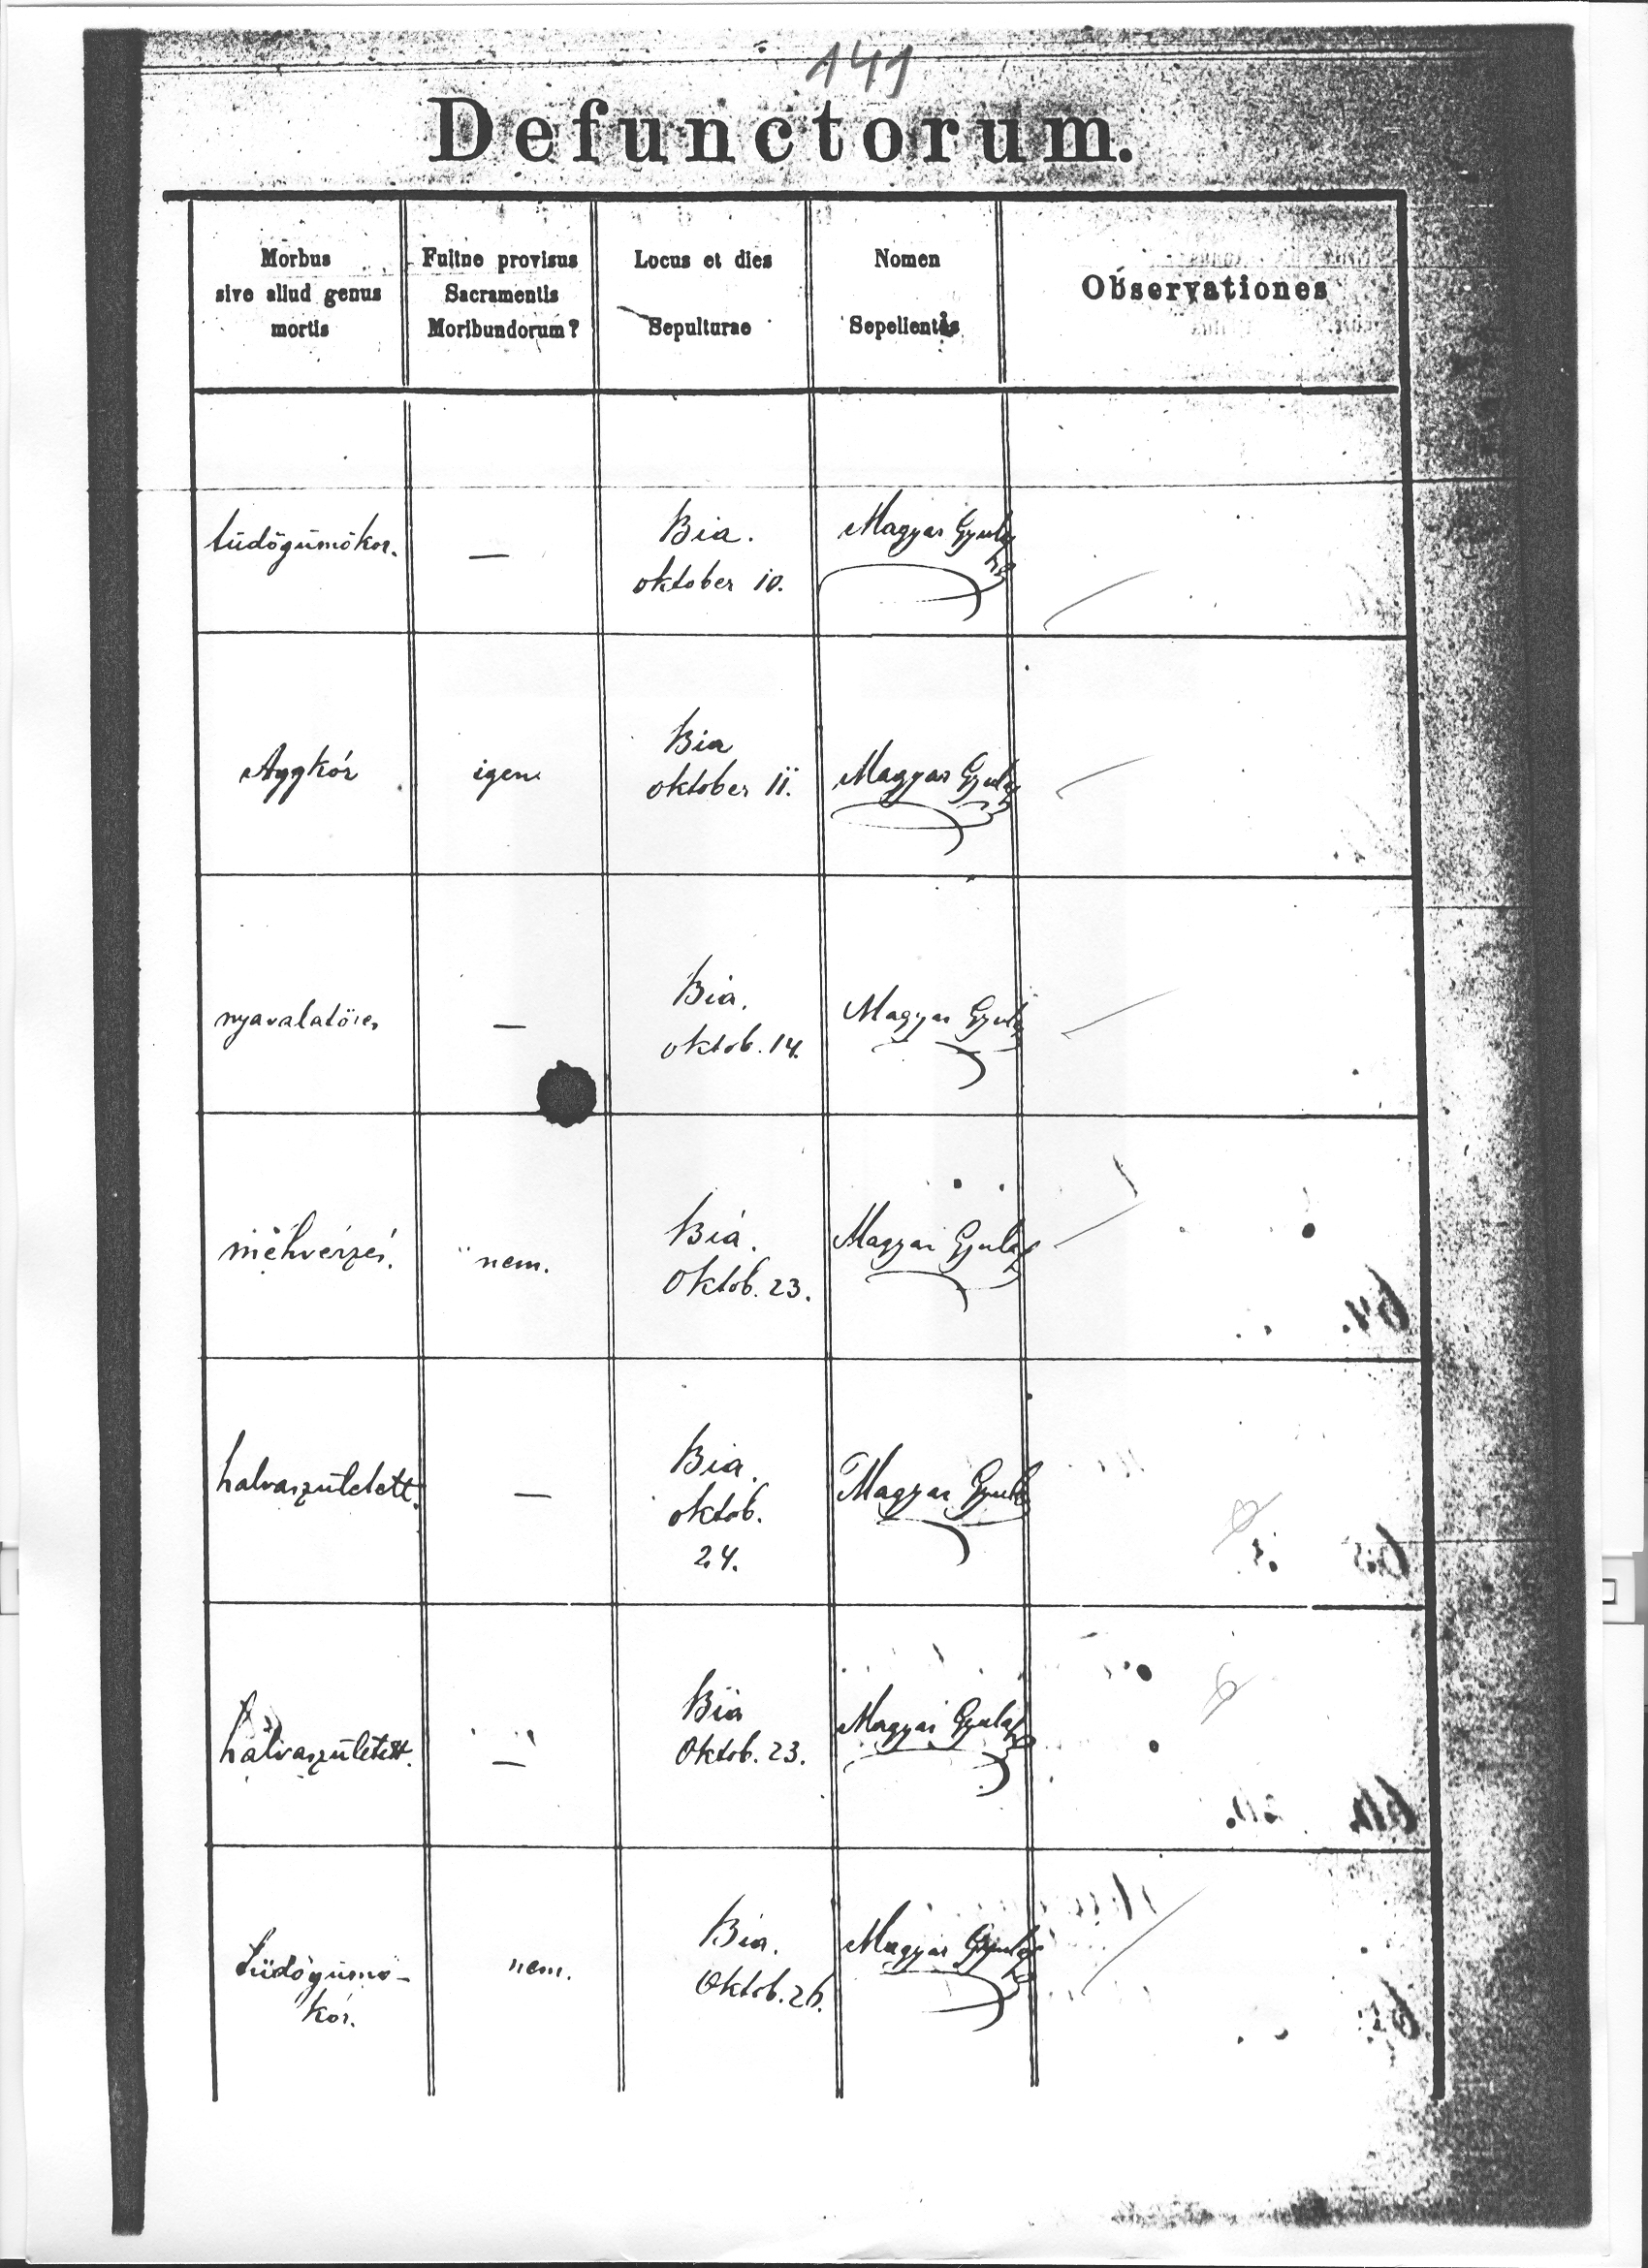 149
Defunctorum.
Morbus
sive aliud genus
mortis
Fuitne provisus
Sacramentis
Moribundorum?
Locus et dies
Sepulturae
Nomen
Sepelientis
Observationes
tüdőgümőkor.
—
Bia.
oktober 10.
Magyar Gyula
Aggkór
igen
Bia
oktober 11.
Magyar Gyula
nyavalatörés
—
Bia.
oktob. 14.
Magyar Gyula
méhvérzés.
nem.
Bia.
Oktob. 23.
Magyar Gyula
halvaszületett.
—
Bia.
oktob.
24.
Magyar Gyula
halvaszületett.
—
Bia
Oktob. 23.
Magyar Gyula
tüdőgümő-
kór.
nem.
Bia.
Oktob. 26.
Magyar Gyula